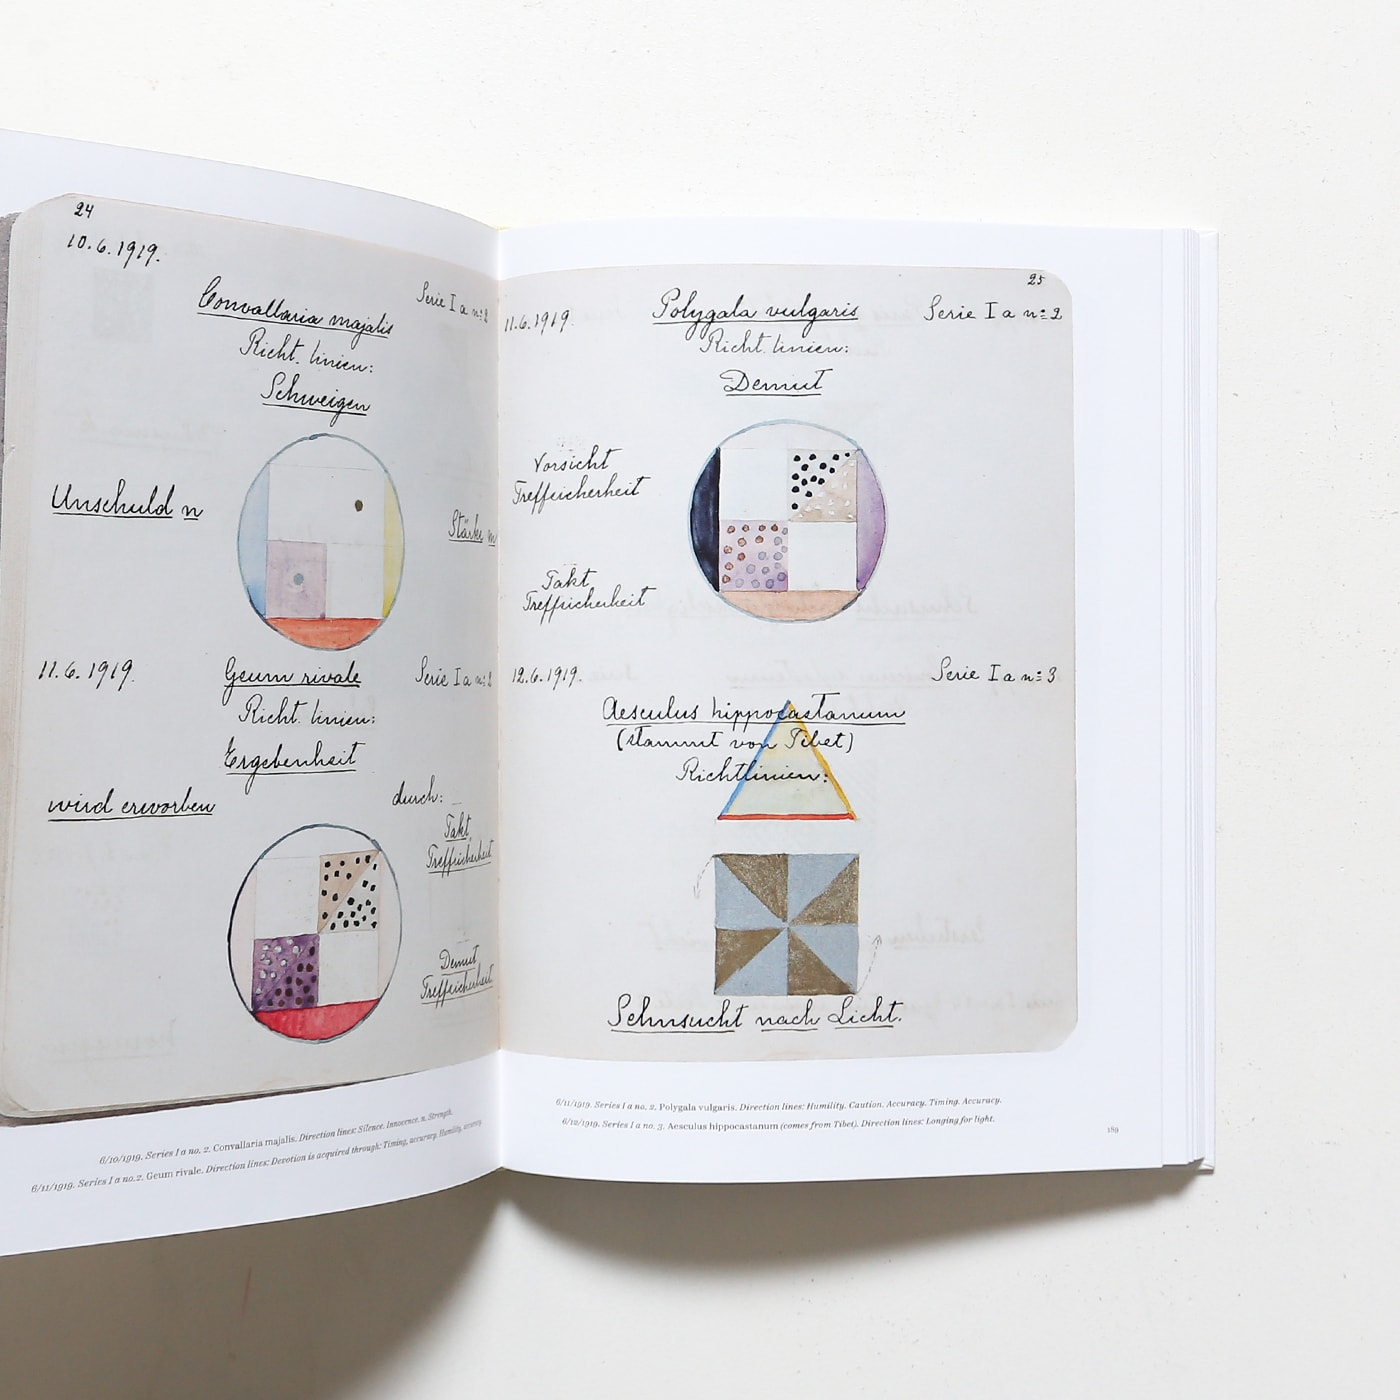 24
10.6.1919.
Convallaria majalis
Serie I a n:o 2
Richt. linien:
Schweigen
Unschuld n
Stärke n
11.6.1919.
Geum rivale
Serie I a n:o 2
Richt. linien:
Ergebenheit
wird erworben
durch:
Takt
Treffsicherheit
Demut
Treffsicherheit
6/10/1919. Series I a no. 2. Convallaria majalis. Direction lines: Silence. Innocence. n. Strength.
6/11/1919. Series I a no. 2. Geum rivale. Direction lines: Devotion is acquired through: Timing, accuracy. Humility, accuracy.
25
11.6.1919.
Polygala vulgaris
Serie I a n:o 2
Richt. linien:
Demut
Vorsicht
Treffsicherheit
Takt
Treffsicherheit
12.6.1919.
Serie I a n:o 3
Aesculus hippocastanum
(stammt von Tibet)
Richtlinien:
Sehnsucht nach Licht.
6/11/1919. Series I a no. 2. Polygala vulgaris. Direction lines: Humility. Caution. Accuracy. Timing. Accuracy.
6/12/1919. Series I a no. 3. Aesculus hippocastanum (comes from Tibet). Direction lines: Longing for light.
189